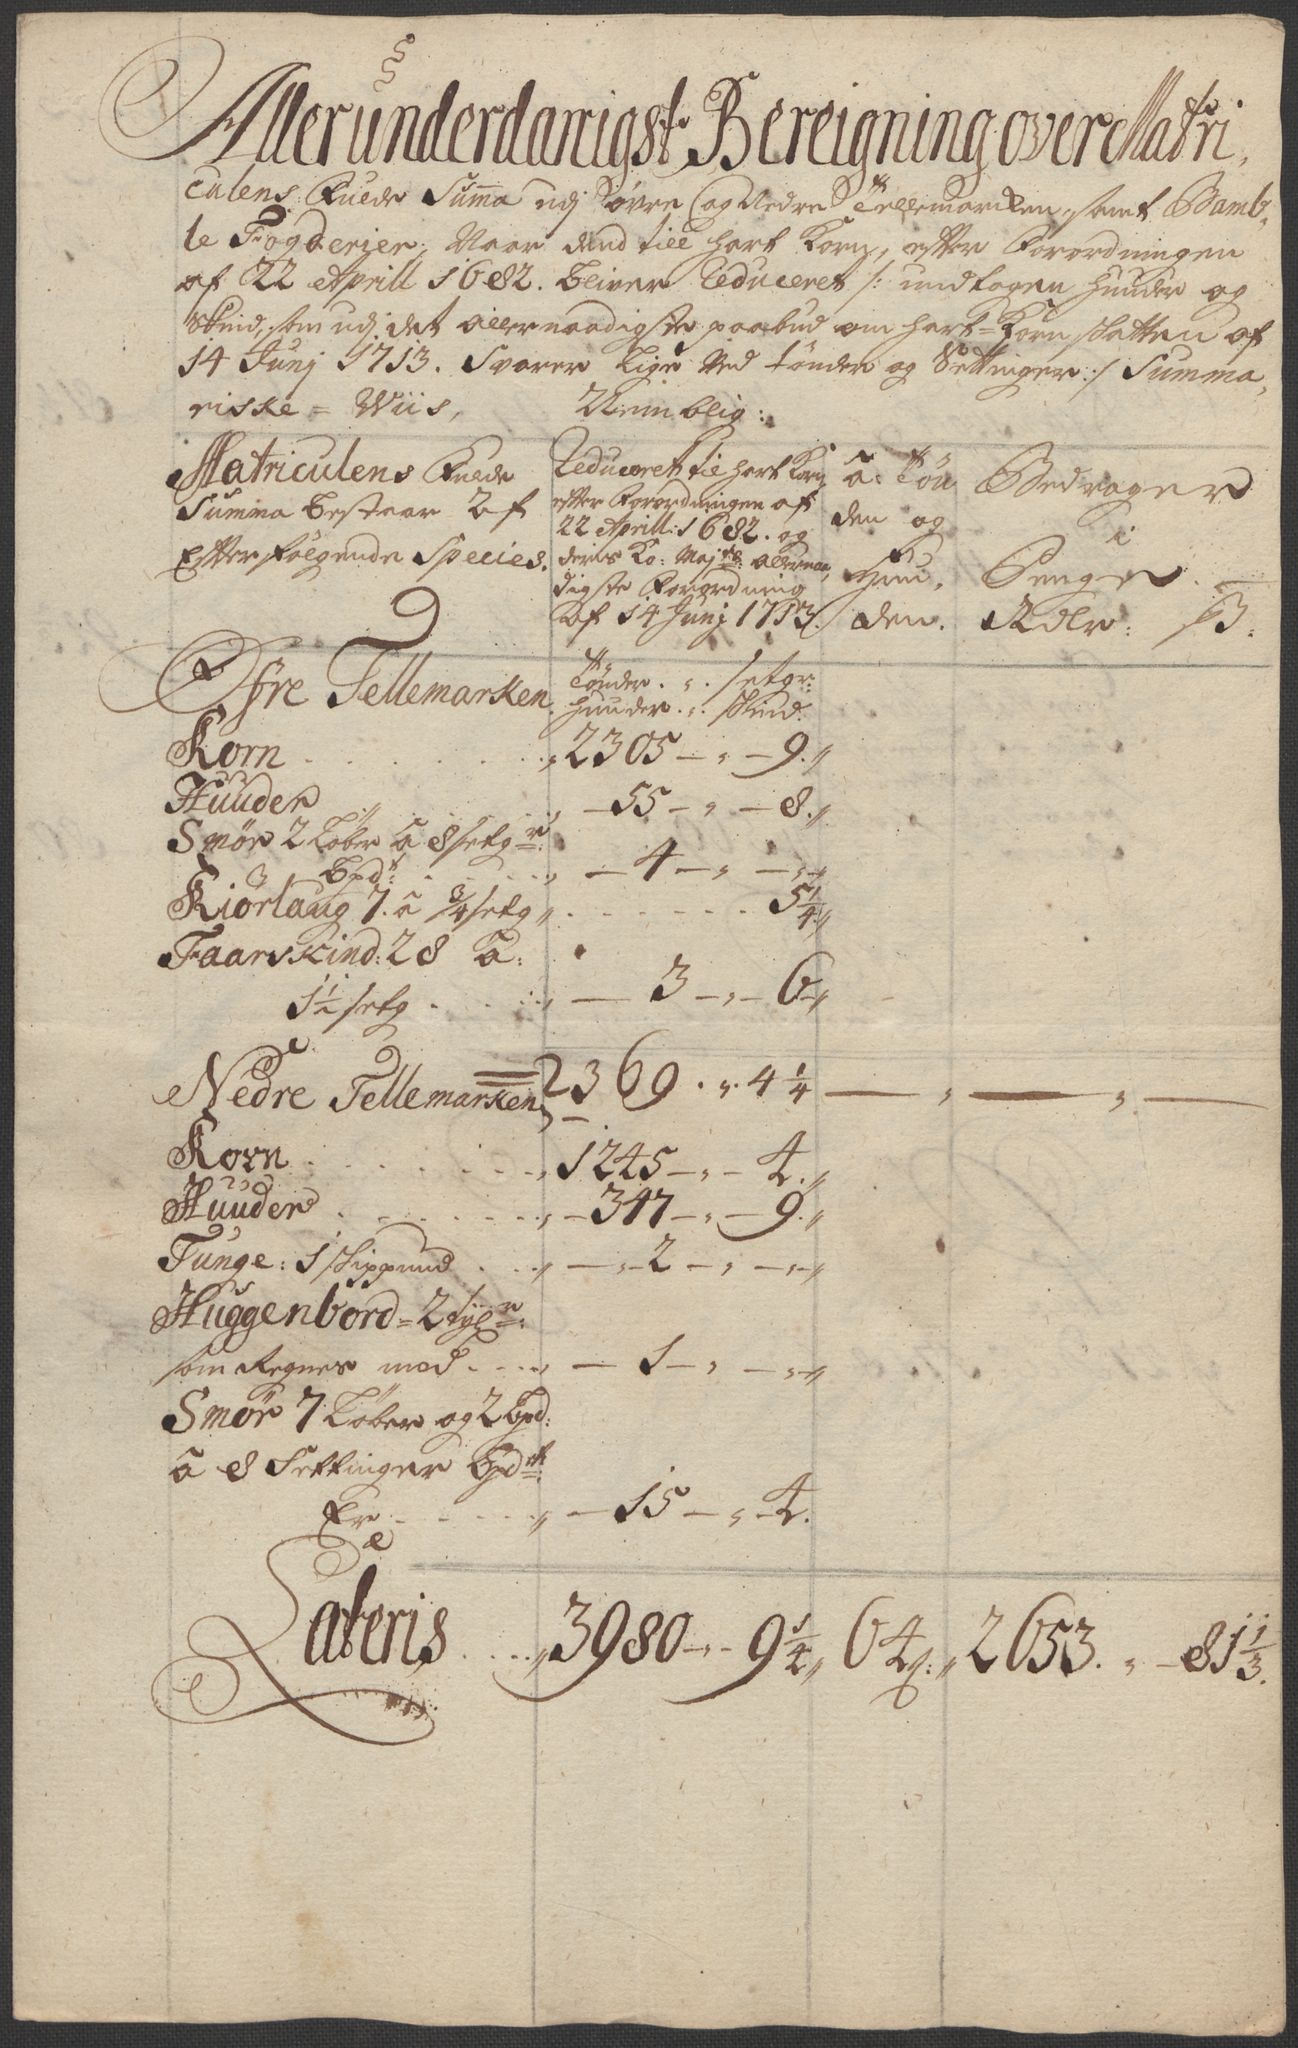 Allerunderdanigst Bereigning over Matri,
culens fulde Summa udj Øvre (og Nedre) Tellemarcken, samt Bamb-
le Fogderier, Naar dend till hart Korn, efter Forordningen
af 22 Aprill 1682. bliver Reduceret /: undtagen Huuder og
Skind, som udj det allernaadigste paabud om hart-Korn skatten af
14 Junj 1713. svarer Lige Ved tønder og Settinger :/ Summa,
riske = Wiis, Nemblig:
Matriculens fulde
Summa bestaar af
Efterfølgende Species.
Reduceret til hart Korn
efter Forordningen af
22 Aprill: 1682. og
deris Ko: Maj:ts allernaa,
digste Forordning
af 14 Junj 1713.
a: Tøn
den og
Huu,
den.
Bedrager
i
Penge.
Rdlr: ß:
Øfre Tellemarken.
Tønder. „. setgr:
Huuder. „. skind.
Korn . . . „ 2305 — „ — 9. „
Huuder „ — 55 — „ — 8. „
Smør 2 Løber a 8 setgr:
Bpd: . . . „ — 4 — „ — „ — „
Kiørlaug 7. a 3/4 setg „ . . . . . 5 1/4. „
Faarskind: 28 a:
1 1/2 setg . . . „ — 3 — „ — 6 — „
2369. „. 4 1/4 — „ — „ —
Nedre Tellemarken
Korn . . . „ 1245 — „ — 4. „
Huuder . . . „ — 347 — „ — 9. „
Tunge: 1 skippund . . . „ — „ — 2 — „ — „ — „
Huggenbord = 2 tylr:
som Regnes med . . . „ — 1 — „ — „ — „
Smør 7 Løber og 2 Bpd:
a 8 Settinger Bpdt:
Er . . . „ — 15 — „ — 4.
Lateris . . . „ 3980 — „ — 9 1/4 „ 64 ß: „ 2653. „ — 81 1/3.